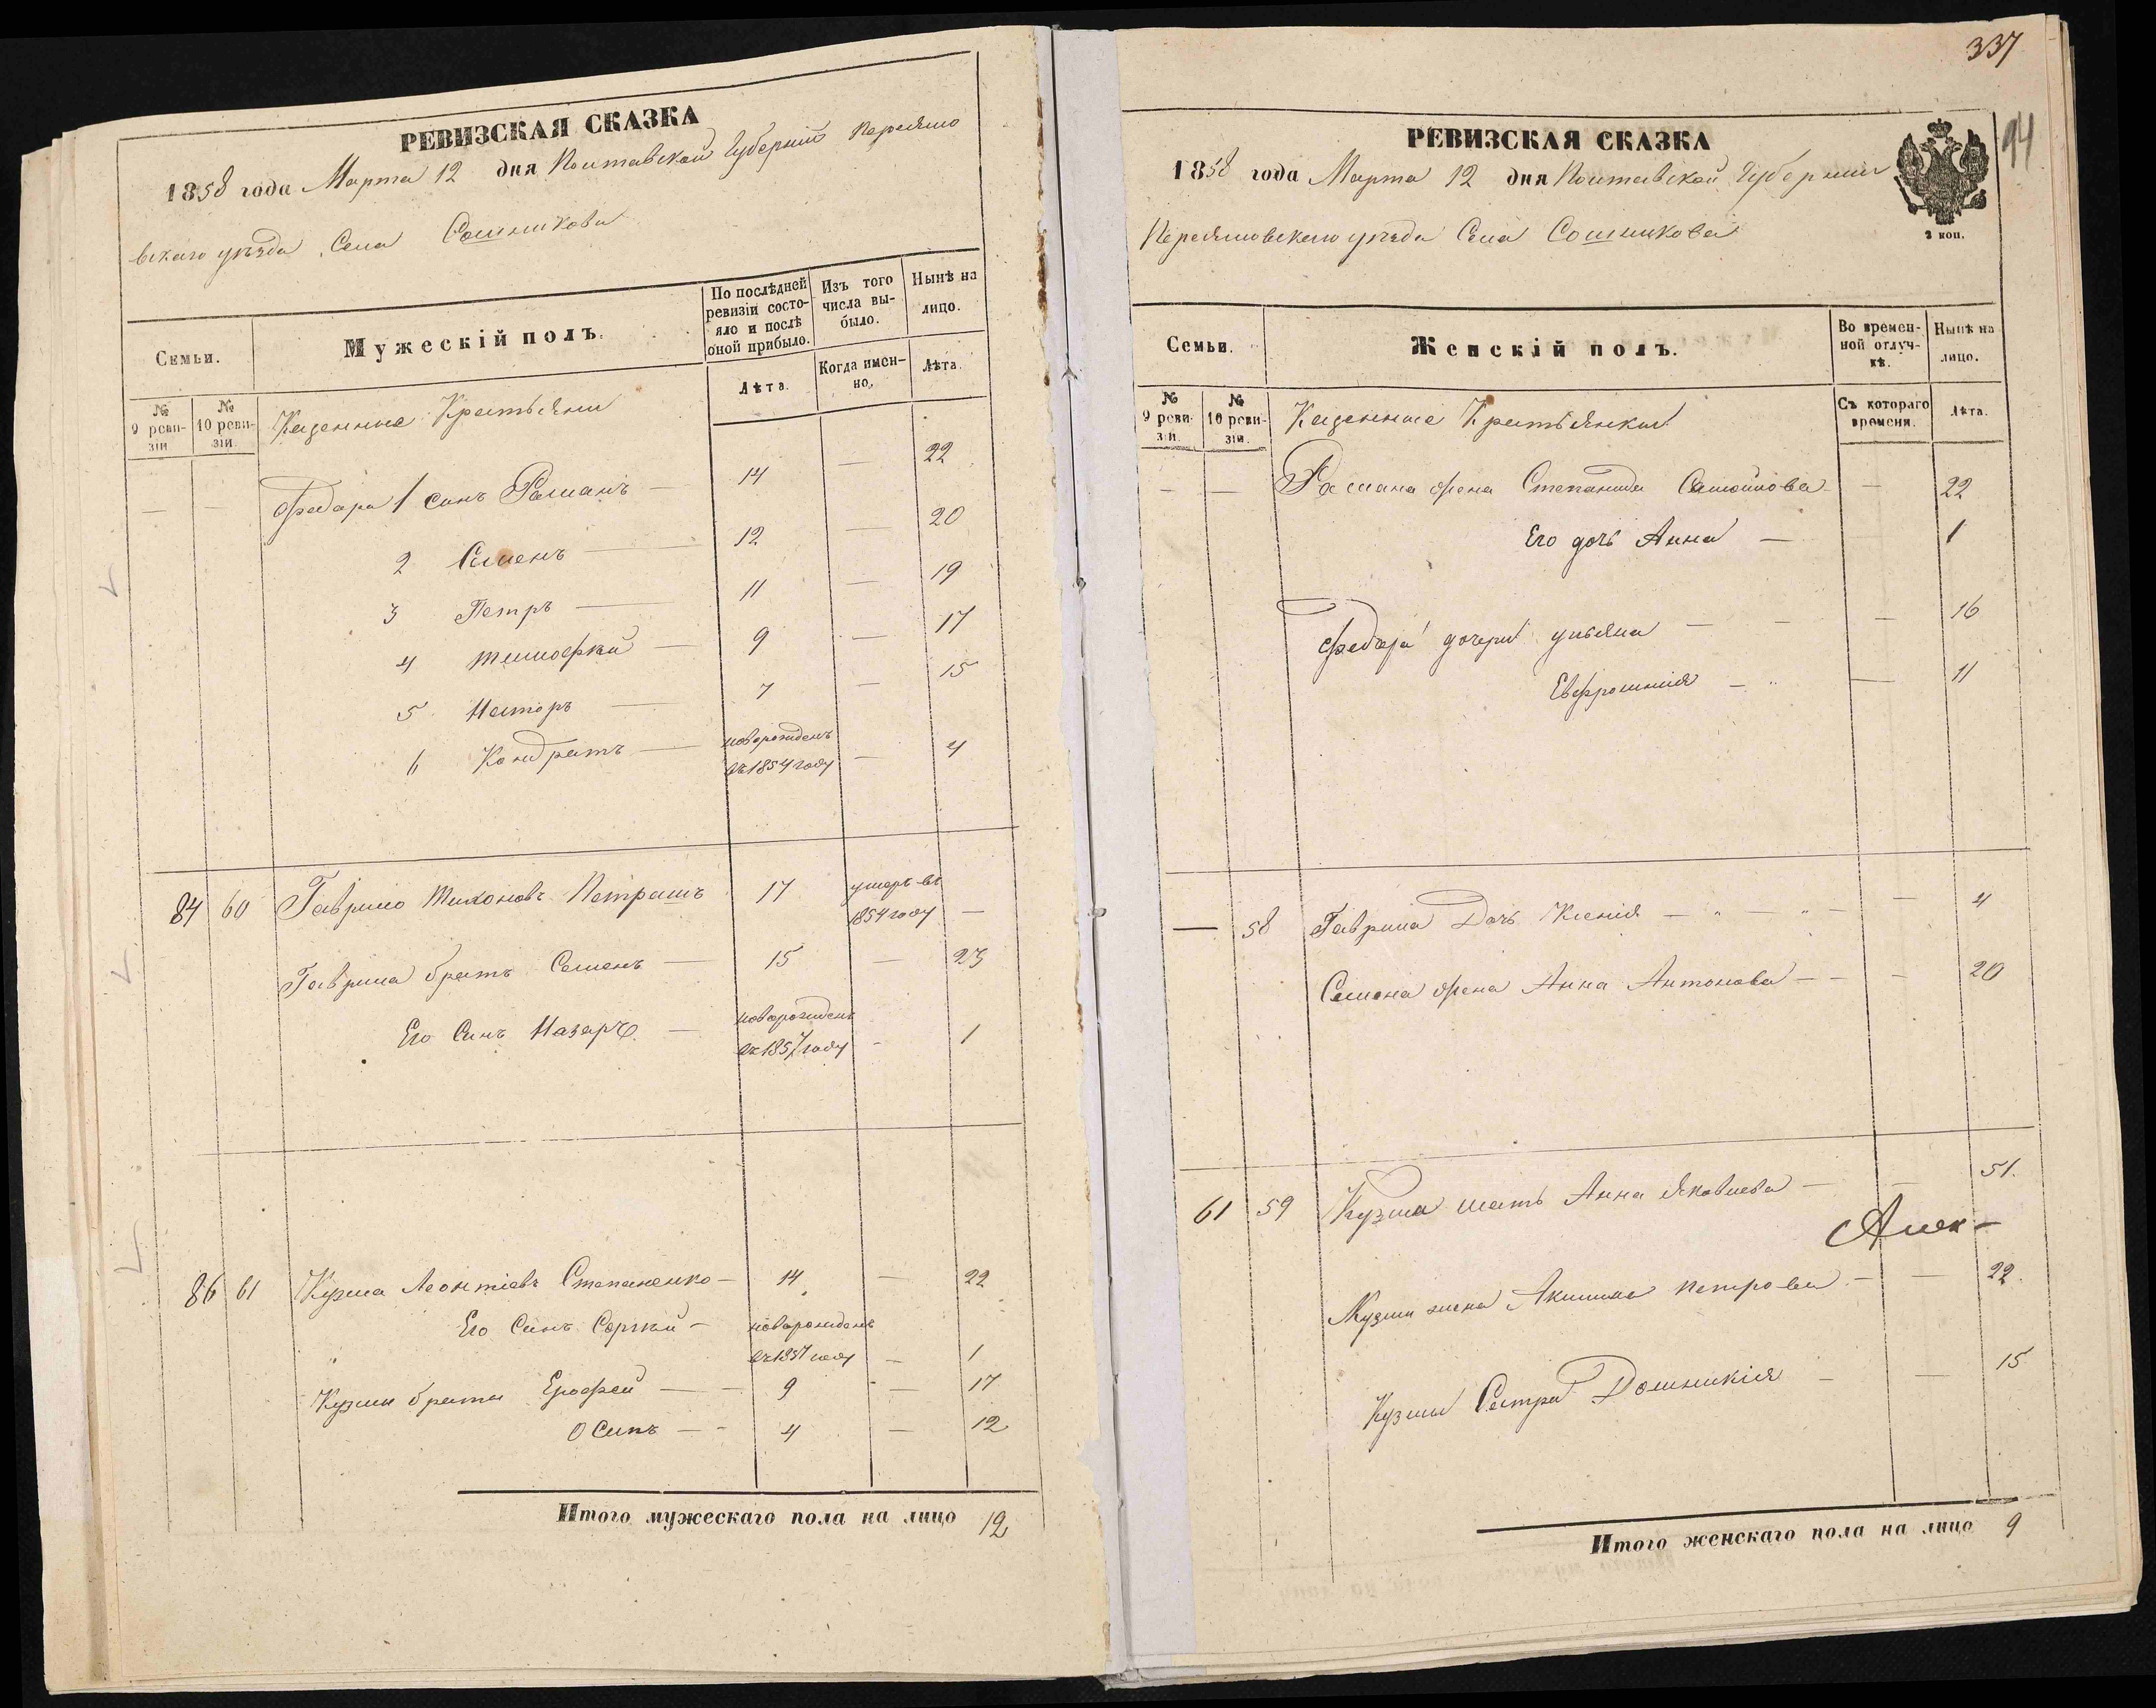 РЕВИЗСКАЯ СКАЗКА
1858 года Марта 12 дня Полтавской Губерніи Переясло
вскаго уѣзда Села Сошникова
Семьи.
Мужескій полъ.
По послѣдней ревизіи состояло и послѣ оной прибыло.
Изъ того числа выбыло.
Нынѣ на лицо.
№ 9 ревизіи
№ 10 ревизіи.
Казенные Крестьяни
Лѣта.
Когда именно.
Лѣта.
— — Федора 1 сынъ Романъ — 14 — 22
2 Семенъ — 12 — 20
3 Петръ — 11 — 19
4 Тимофей — 9 — 17
5 Несторъ — 7 — 15
6 Кондратъ — новорожденъ
въ 1854 году — 4
84 60 Гаврило Тихоновъ Петрашъ 17 умеръ въ
1854 году —
Гаврила братъ Семенъ — 15 — 23
Его Синъ Назаръ — новорожденъ
въ 1857 году - 1
86 61 Кузма Леонтіевъ Степаненко — 14 — 22
Его Синъ Сергей — новорожденъ
въ 1857 году — 1
Кузми братья Ерофей — 9 — 17
Осипъ — 4 — 12
Итого мужескаго пола на лицо 12
337
94
РЕВИЗСКАЯ СКАЗКА
1858 года Марта 12 дня Полтавской Губерніи
3 коп.
Переясловскаго уѣзда Села Сошникова
Семьи.
Женскій полъ.
Во временной отлучкѣ.
Нынѣ на лицо.
№ 9 ревизіи.
№ 10 ревизіи.
Казенные Крестьянки
Съ котораго времени.
Лѣта.
— — Романа жена Степанида Самойлова — 22
Его дочь Анна — 1
Федора дочери Ульяна — — 16
Евфросинія — — 11
— 58 Гаврила Дочь Ксенія — — 4
Семена жена Анна Антонова — — 20
61 59 Кузма мать Анна Яковлева — — 51.
Алек-
Кузми жена Акилина Петрова — — 22.
Кузмы Сестра Домникія — — 15
Итого женскаго пола на лицо 9